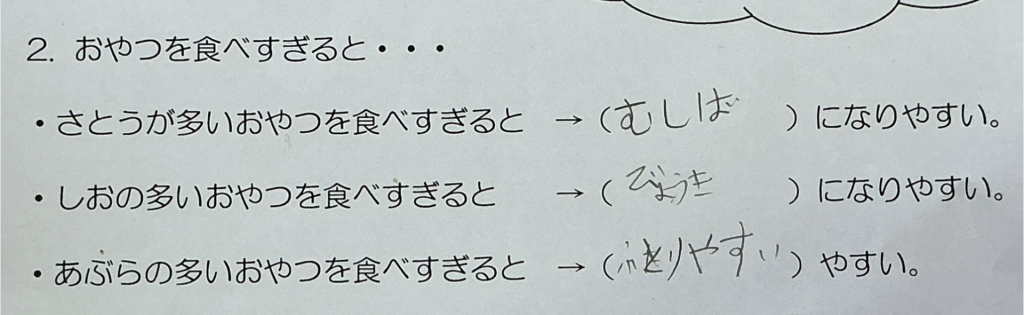 2. おやつを食べすぎると・・・
・さとうが多いおやつを食べすぎると → (むしば)になりやすい。
・しおの多いおやつを食べすぎると → (びょうき)になりやすい。
・あぶらの多いおやつを食べすぎると → (ふとりやすい)やすい。